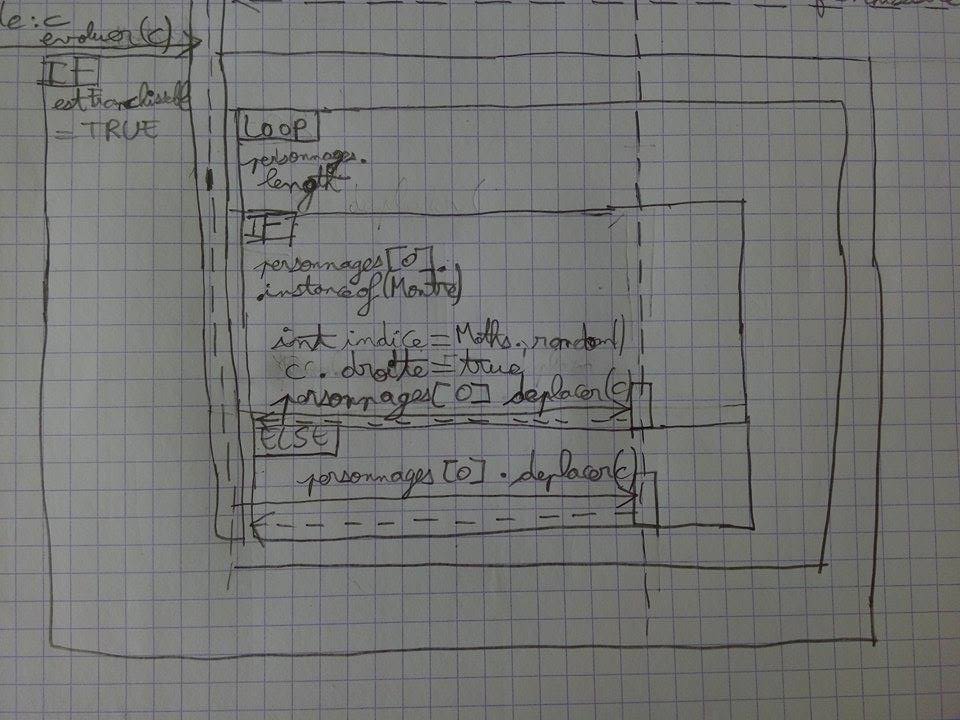 le : c
evoluer(c)
IF
est franchissable
= TRUE
LOOP
personnages.
length
IF
personnages[0].
.instanceof(Montre)
int indice = Maths.random()
c. droite = true
personnages[0] deplacer(c)
ELSE
personnages[0]. deplacer(c)